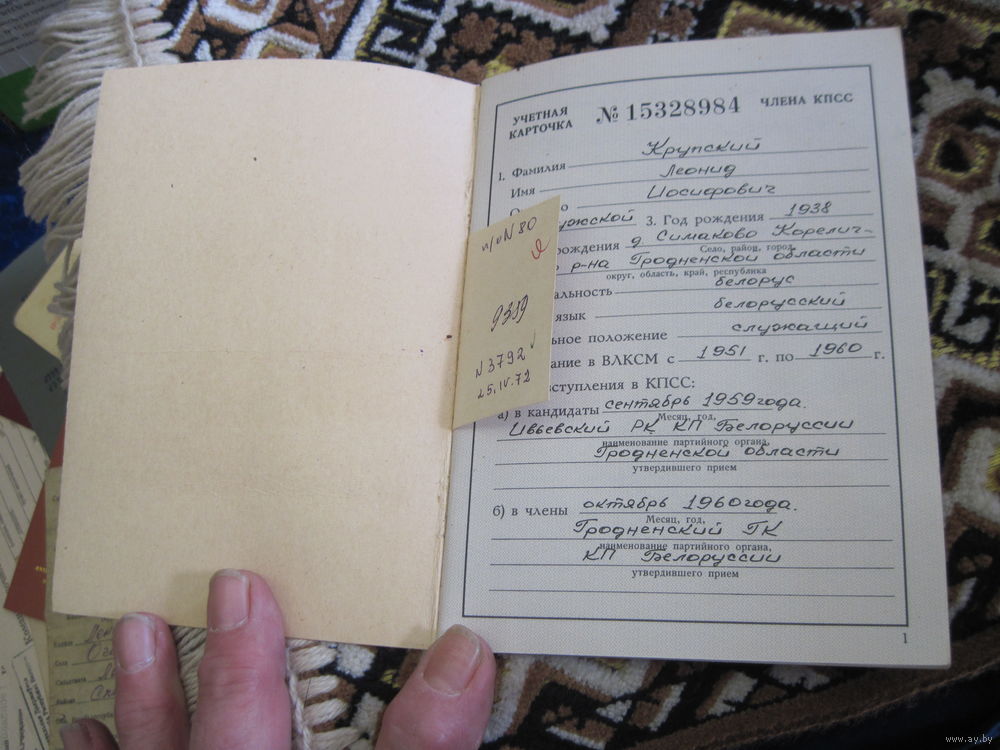 УЧЕТНАЯ
КАРТОЧКА
№ 15328984
ЧЛЕНА КПСС
1. Фамилия Крупский
Имя Леонид
о Иосифович
ужской 3. Год рождения 1938
рождения д. Симаково Корелич-
Село, район, город,
р-на Гродненской области
округ, область, край, республика
альность белорус
язык белорусский
ьное положение служащий
ание в ВЛКСМ с 1951 г. по 1960 г.
вступления в КПСС:
а) в кандидаты сентябрь 1959 года.
Месяц, год,
Ивьевский РК КП Белоруссии
наименование партийного органа,
Гродненской области
утвердившего прием
б) в члены октябрь 1960 года.
Месяц, год,
Гродненский ГК
наименование партийного органа,
КП Белоруссии
утвердившего прием
1
п/о N 80
9359
N 3792
25.IV.72
www.ay.by